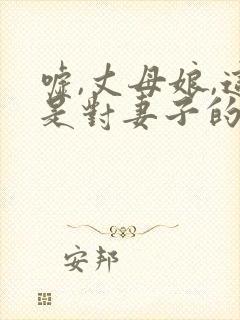 嘘,丈母娘,這
是對妻子的
安邦